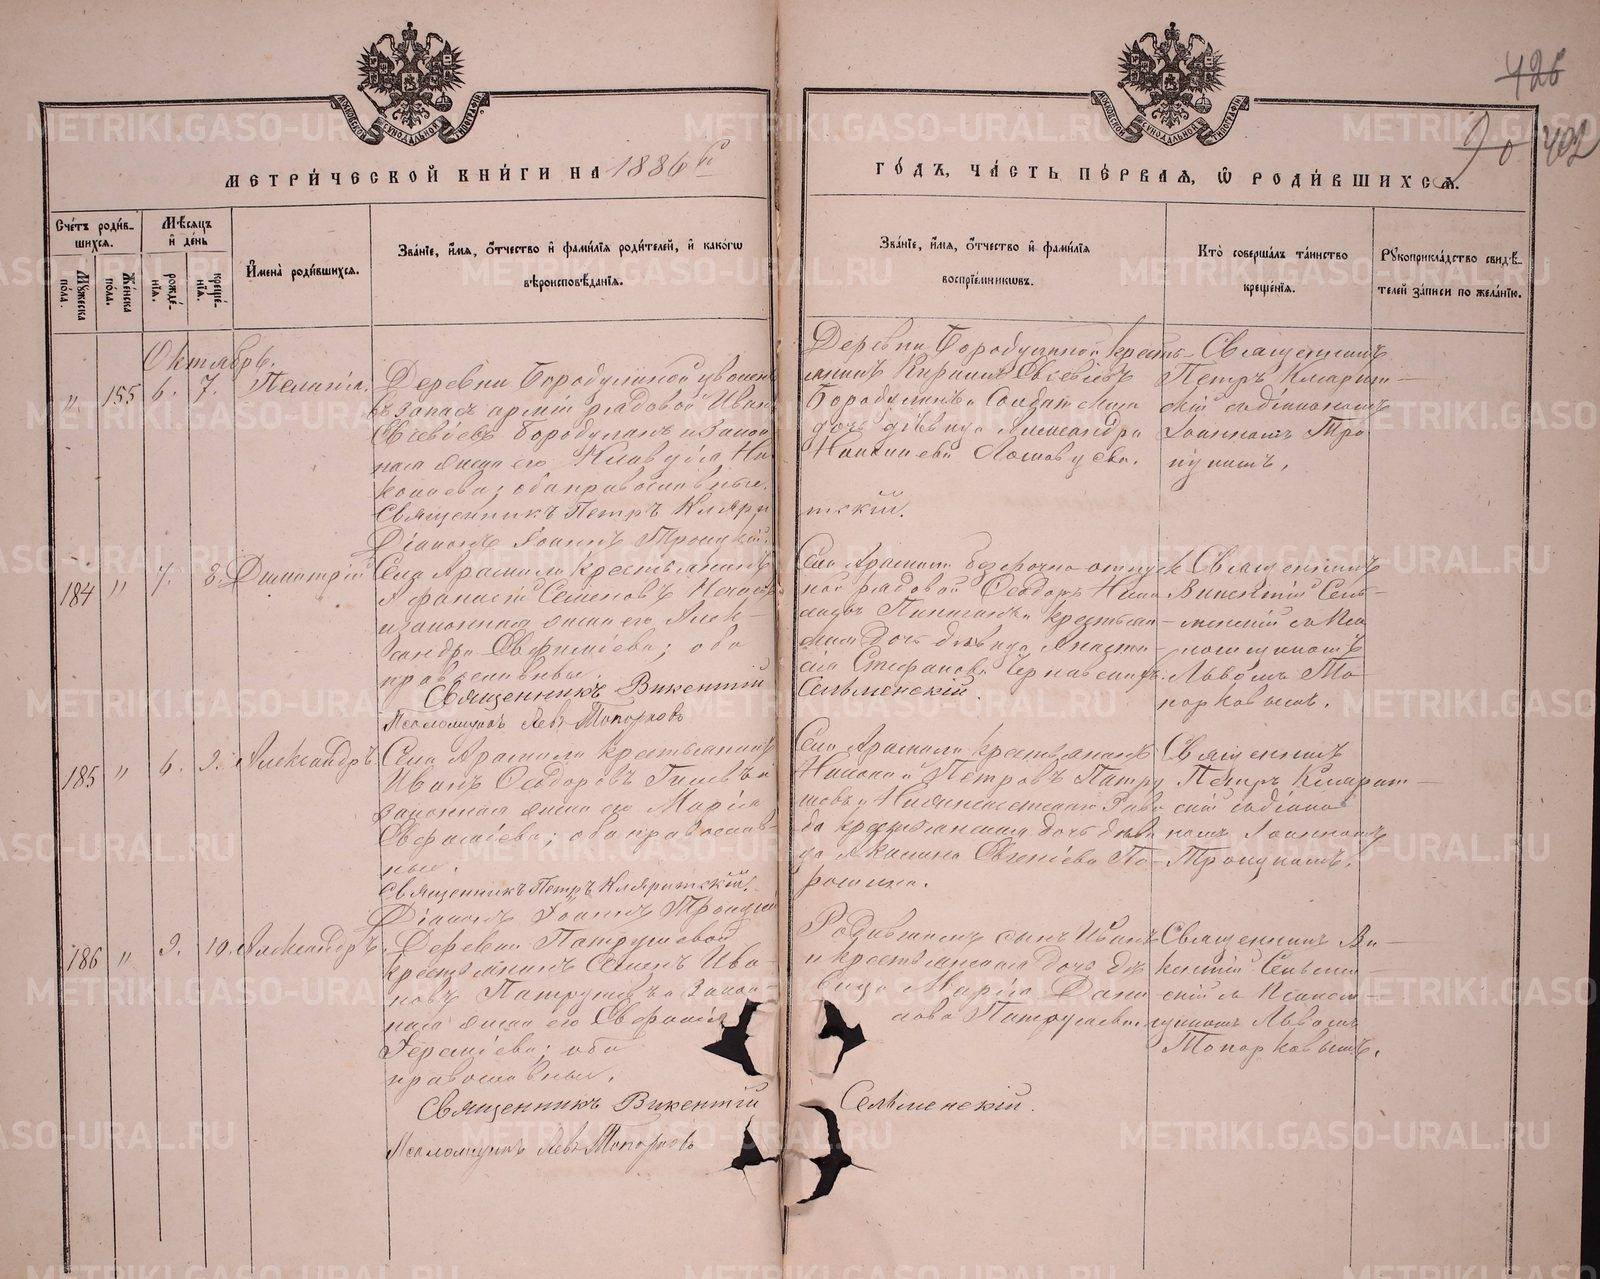 426
90 402
МЕТРИ́ЧЕСКОЙ КНИ́ГИ НА 1886й
ГО́ДЪ, ЧА́СТЬ ПЕ́РВАЯ, Ѡ РОДИ́ВШИХСЯ.
Сче́тъ роди́в-
шихся.
Мꙋжеска по́ла.
Же́нска по́ла.
Мѣ́сяцъ
и де́нь
рожде́-
нїя.
креще́-
нїя.
Имена̀ роди́вшихся.
Зва́нїе, и́мя, ѻ́тчество и фами́лїя роди́телей, и како́гѡ
вѣроисповѣ́данїя.
Зва́нїе, и́мя, ѻ́тчество и фами́лїя
воспрїе́мникѡвъ.
Кто̀ соверша́лъ та́инство
креще́нїя.
Рꙋкоприкла́дство свидѣ́-
телей за́писи по жела́нїю.
Октябрь.
" 155 6. 7. Пелагія.
Деревни Бородулиной уволен
въ запас арміи рядовой Иван
Евсѣевъ Бородулинъ и закон
ная жена его Клавдія Ни
колаева; оба православные.
Священникъ Петръ Кляри
Діаконъ Іоаннъ Троицкій.
Деревни Бородулиной кресть-
янинъ Кирилъ Евсѣевъ
Бородулинъ и Солдатская
дочь дѣвица Александра
тскій.
Священникъ
Петръ Кларит-
скій съ діакономъ
Іоанномъ Тро
ицкимъ.
184 " 7. 8. Димитрій
Села Арамили крестьянинъ
Афанасій Семеновъ
и законная жена его Алек-
сандра Ефимьева; оба
православные.
Священникъ Викентій
Псаломщикъ Левъ Топорковъ
Села Арамили безсрочно отпуск
ной рядовой Ѳеодоръ
и крестьян-
ская дочь дѣвица Анаста-
сія Стефанова
Сельменскій.
Священникъ
Викентій Сель-
менскій съ Пса
ломщикомъ
Львомъ То-
порковымъ.
185 " 6. 9. Александръ
Села Арамили крестьянинъ
Иванъ Ѳеодоровъ Гилевъ и
законная жена его Марія
Ефимьева; оба православ-
ные.
Священникъ Петръ Кляритскій.
Діаконъ Іоаннъ Троицкій
Села Арамили крестьянинъ
Николай Петровъ Патру
шевъ и Нижнеисетскаго Заво
да крестьянская дочь дѣви
ца Акилина Евгеніева По-
рошина.
Священникъ
Петръ Кларит-
скій съ діако
номъ Іоанномъ
Троицкимъ.
186 " 9. 10. Александръ.
Деревни Патрушевой
крестьянинъ Семенъ Ива-
новъ Патрушевъ и закон-
ная жена его Евфросинія
Герасімова; оба
православные.
Священникъ Викентій
Псаломщикъ Левъ Топорковъ
Родившагося сынъ Иванъ
и крестьянская дочь дѣ
вица Марія Дани
лова Патрушева.
Сельменскій.
Священникъ Ви-
кентій Сельмен-
скій съ Псалом-
щикомъ Львомъ
Топорковымъ.
METRIKI.GASO-URAL.RU